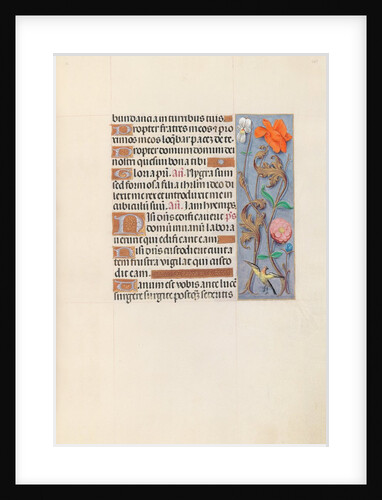 bundancia in turribus tuis
Propter fratres meos ⁊ pro
ximos meos loq̃bar pacẽ de te.
Propter domum domini dei
nostri quesiui bona tibi
Gloria pr̃i. Añ. Nigra sum
sed formosa filia ihrl̃m ideo di
lexit me rex et introduxit me in
cubiculũ suũ. Añ. Iam hyemps. p̃s
Nisi dñs edificauerit
domum in uanũ labora
uerunt qui edificant eam
Nisi dñs custodierit ciuita
tem frustra vigilat qui custo
dit eam.
Uanum est vobis ante lucẽ
surgere surgite postq̃ sederitis